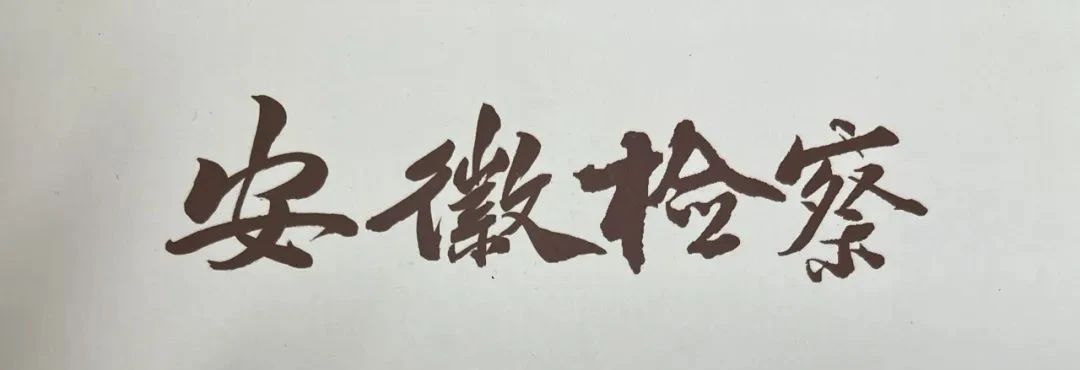 安徽检察